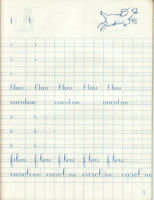 i i
i i
i i
filou filou filou filou
caroline caroline caroline
i i
i i
i i
filou filou filou filou
caroline caroline caroline caroline